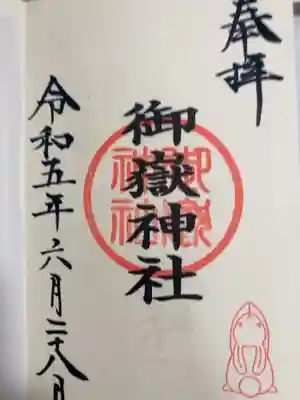 奉拝
御嶽神社
御嶽神社
令和五年六月二十八日